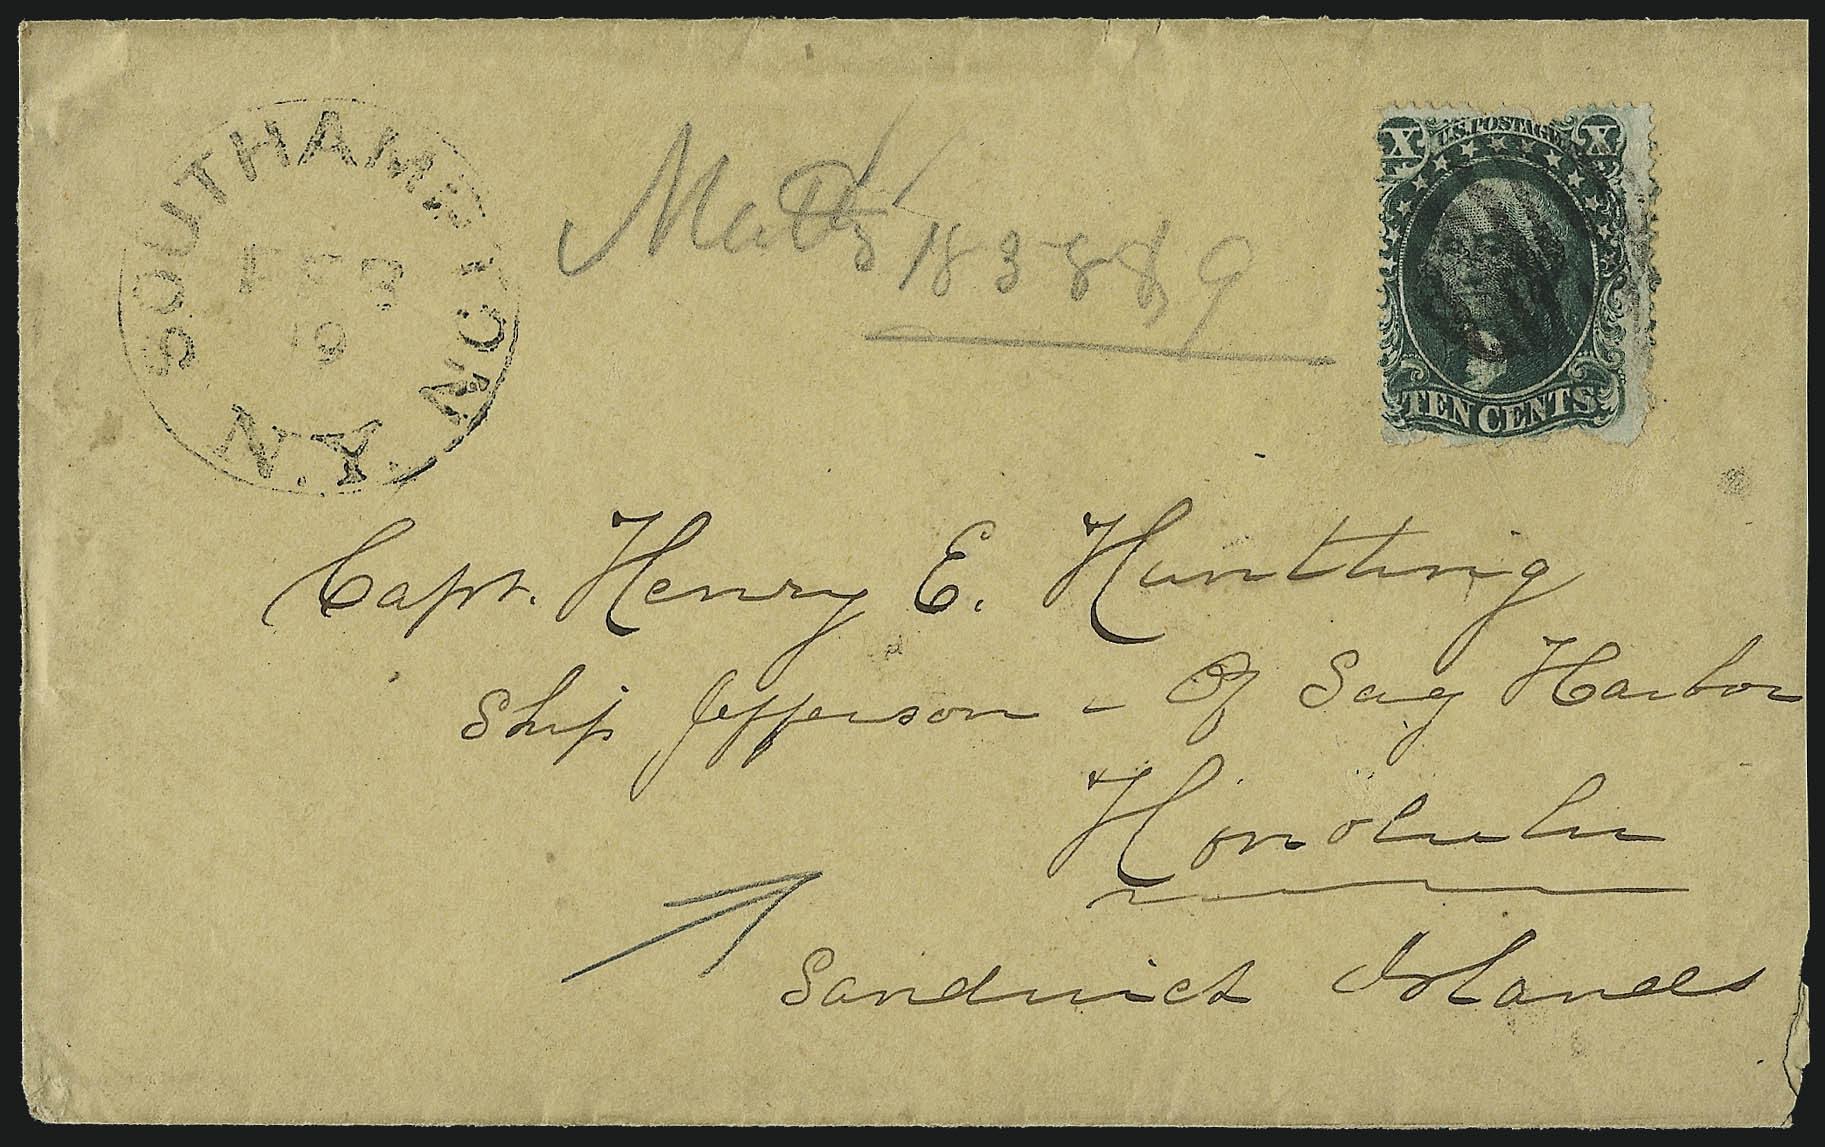 SOUTHAMPTON
FEB
19
N.Y.
18388 9
X U.S. POSTAGE X
TEN CENTS
Capt. Henry E. Huntting
Ship Jefferson - Of Sag Harbor
Honolulu
Sandwich Islands